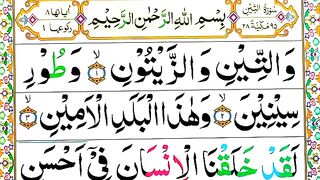 سُوْرَةُ التِّيْنِ
٩٥ مَكِّيَّةٌ ٢٨
بِسْمِ اللّٰهِ الرَّحْمٰنِ الرَّحِيْمِ
اٰيَاتُهَا ٨
رُكُوْعُهَا ١
وَالتِّيْنِ وَالزَّيْتُوْنِ ۙ ١ وَطُوْرِ
سِيْنِيْنَ ۙ ٢ وَهٰذَا الْبَلَدِ الْاَمِيْنِ ۙ ٣
لَقَدْ خَلَقْنَا الْاِنْسَانَ فِيْٓ اَحْسَنِ